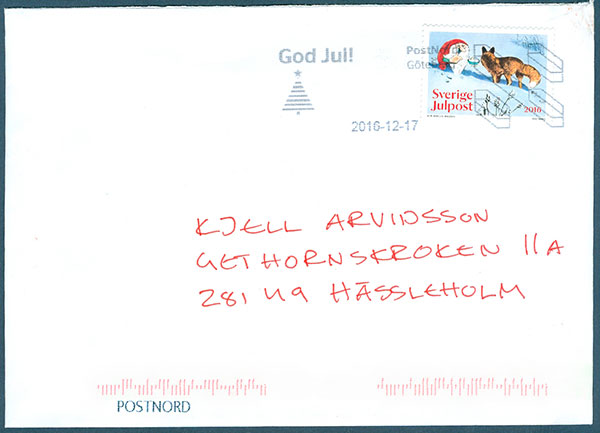 God Jul!
PostNord
Göteborg
2016-12-17
Sverige
Julpost
2016
KJELL ARVIDSSON
GETHORNSKROKEN 11A
281 49 HÄSSLEHOLM
POSTNORD